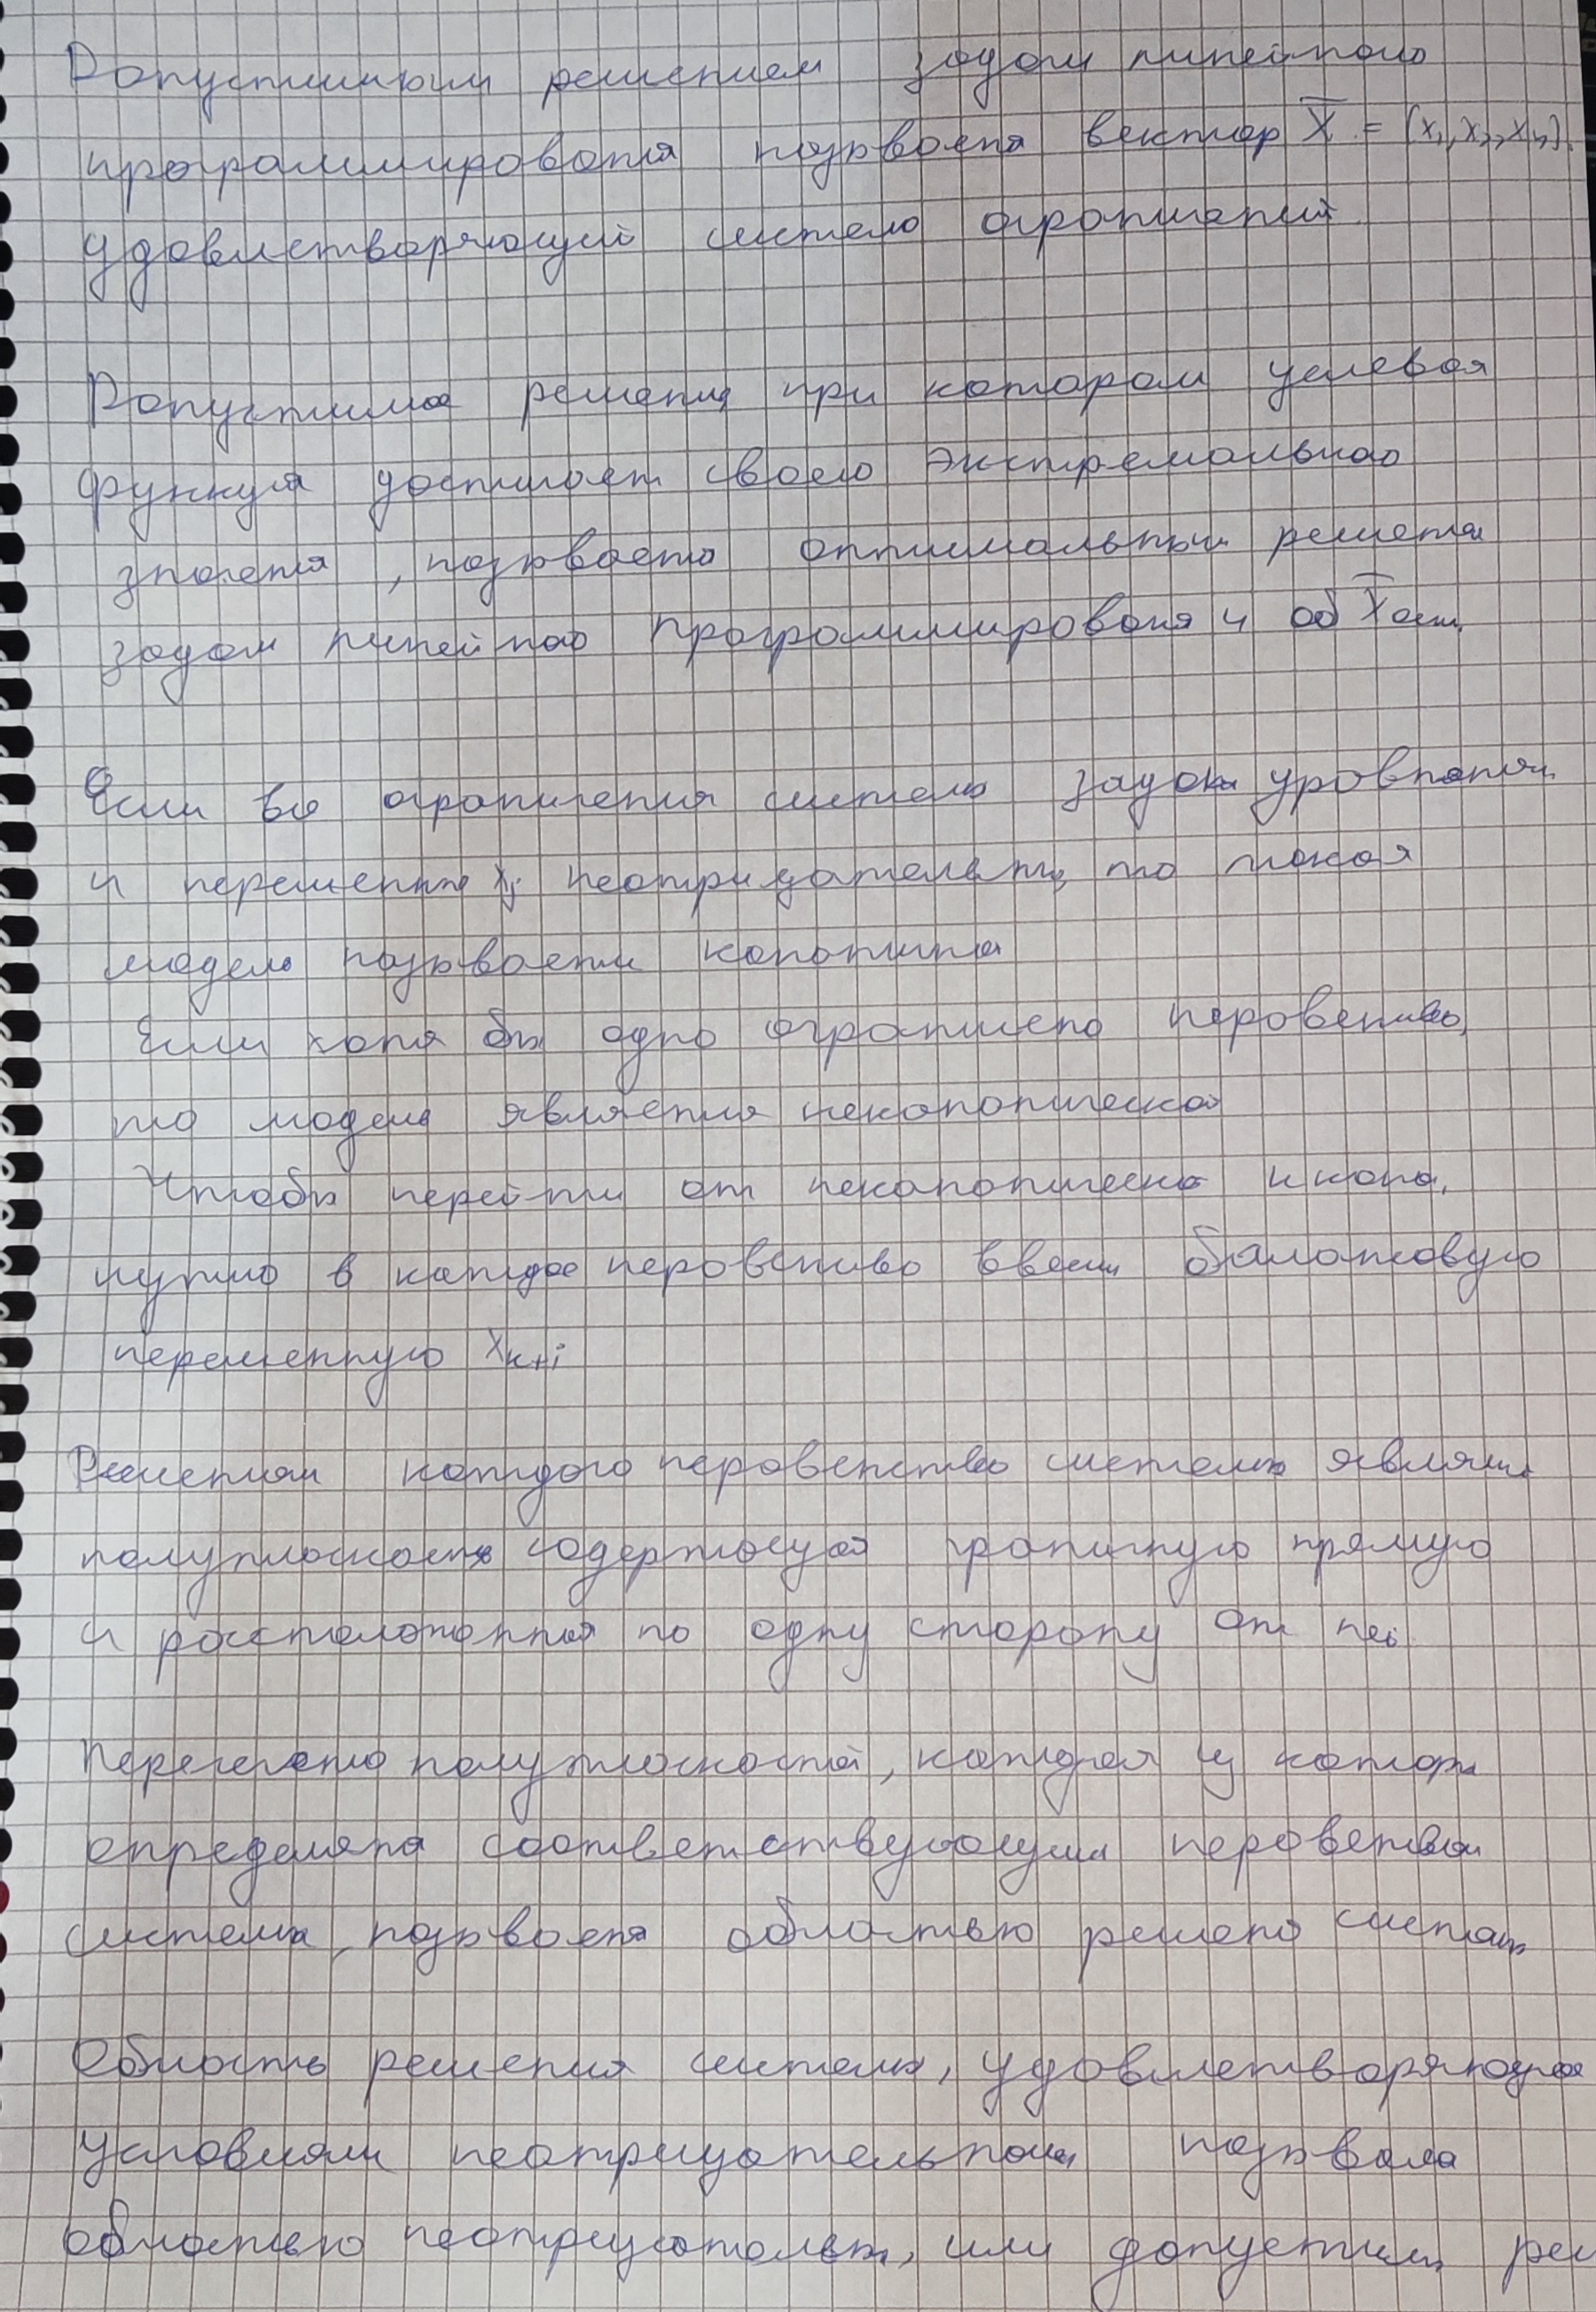 Допустимым решением задачи линейного
программирования называется вектор X̅ = (x₁, x₂, xₙ).
удовлетворяющий система ограничений.
Допустимое решение при котором целевая
функция достигает своего экстремального
значения, называется оптимальным решения
задачи линейного программирования и об X̅
Если все ограничения системы заданы уравнениями
и переменные xⱼ неотрицательны, то такая
модель называется
Если хотя бы одно ограничено неравенство,
то модель является неканонической
Чтобы перейти от неканонической к кано.
нужно в каждое неравенство ввести балансовую
переменную xₖ₊ᵢ
Решением каждого неравенства системы является
полуплоскость содержащая граничную прямую
и расположенная по одну сторону от неё.
Пересечение полуплоскостей, каждая из которых
определяется соответствующим неравенством
системы, называется областью решения системы
Область решения системы, удовлетворяющая
условиям неотрицательности называется
областью неотрицательных, или допустимых реш